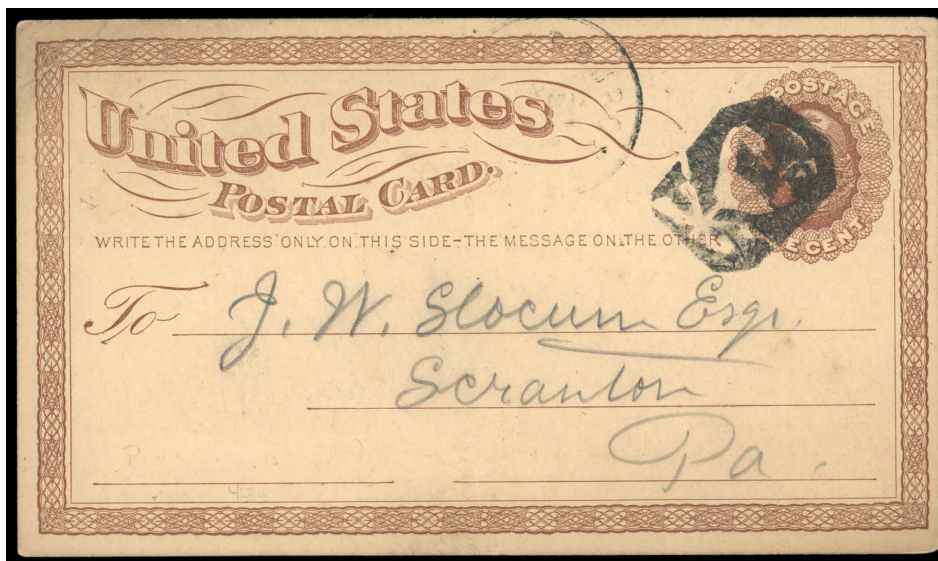 United States
POSTAL CARD.
POSTAGE
E CENT
WRITE THE ADDRESS ONLY ON THIS SIDE-THE MESSAGE ON THE OTHER
To J. W. Slocum Esqr.
Scranton
Pa.